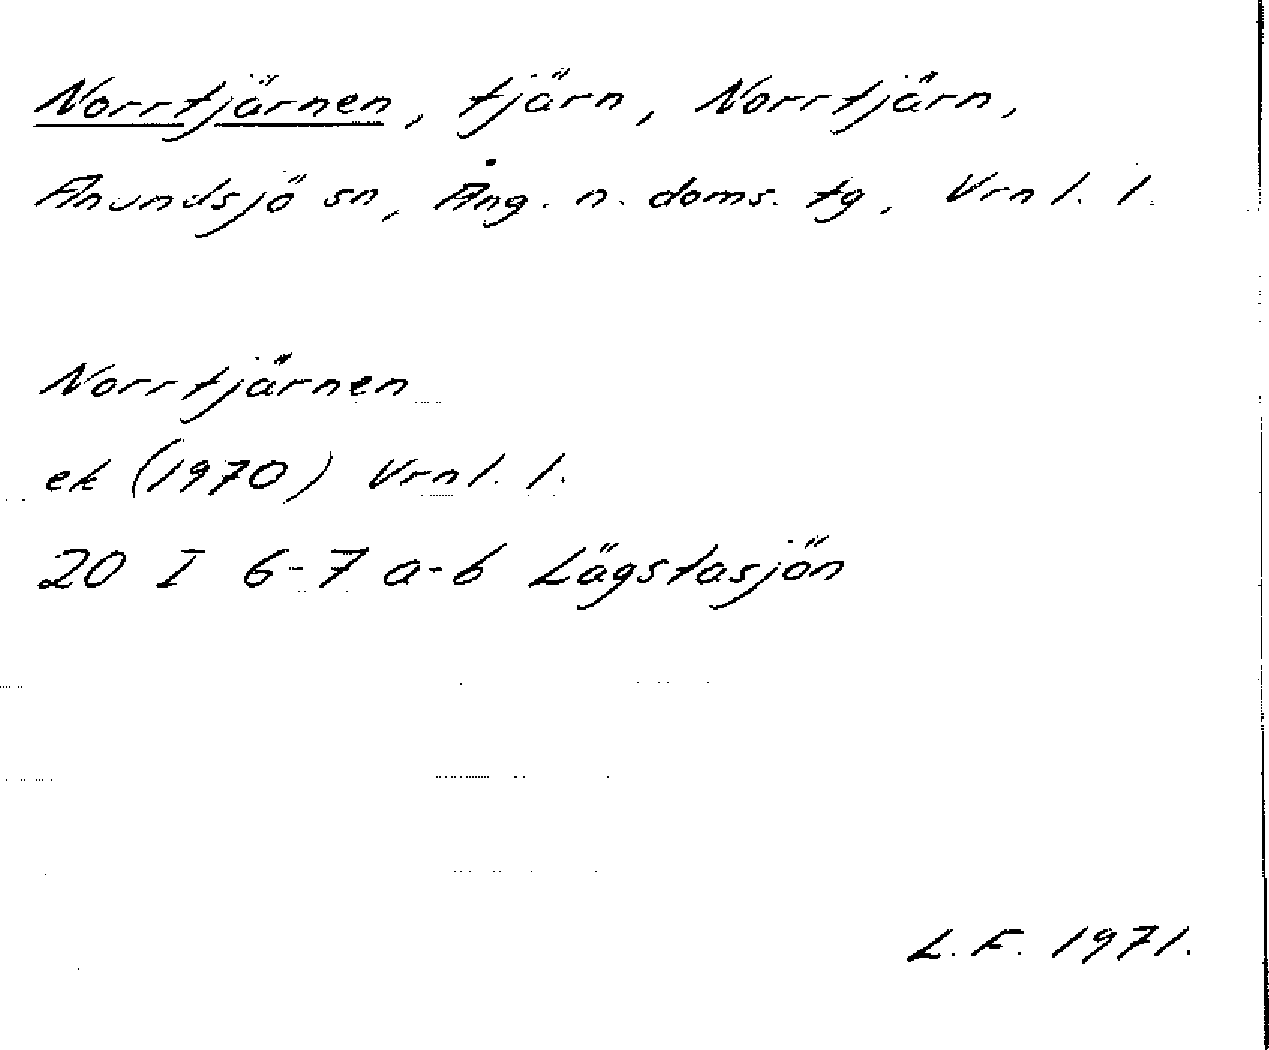 Norrtjärnen, tjärn, Norrtjärn,
Anundsjö sn, Ång. n. doms. tg, Vrnl. l.
Norrtjärnen
ek (1970) Vrnl. l.
20 I 6-7 a-b Lägstasjön
L.F. 1971.